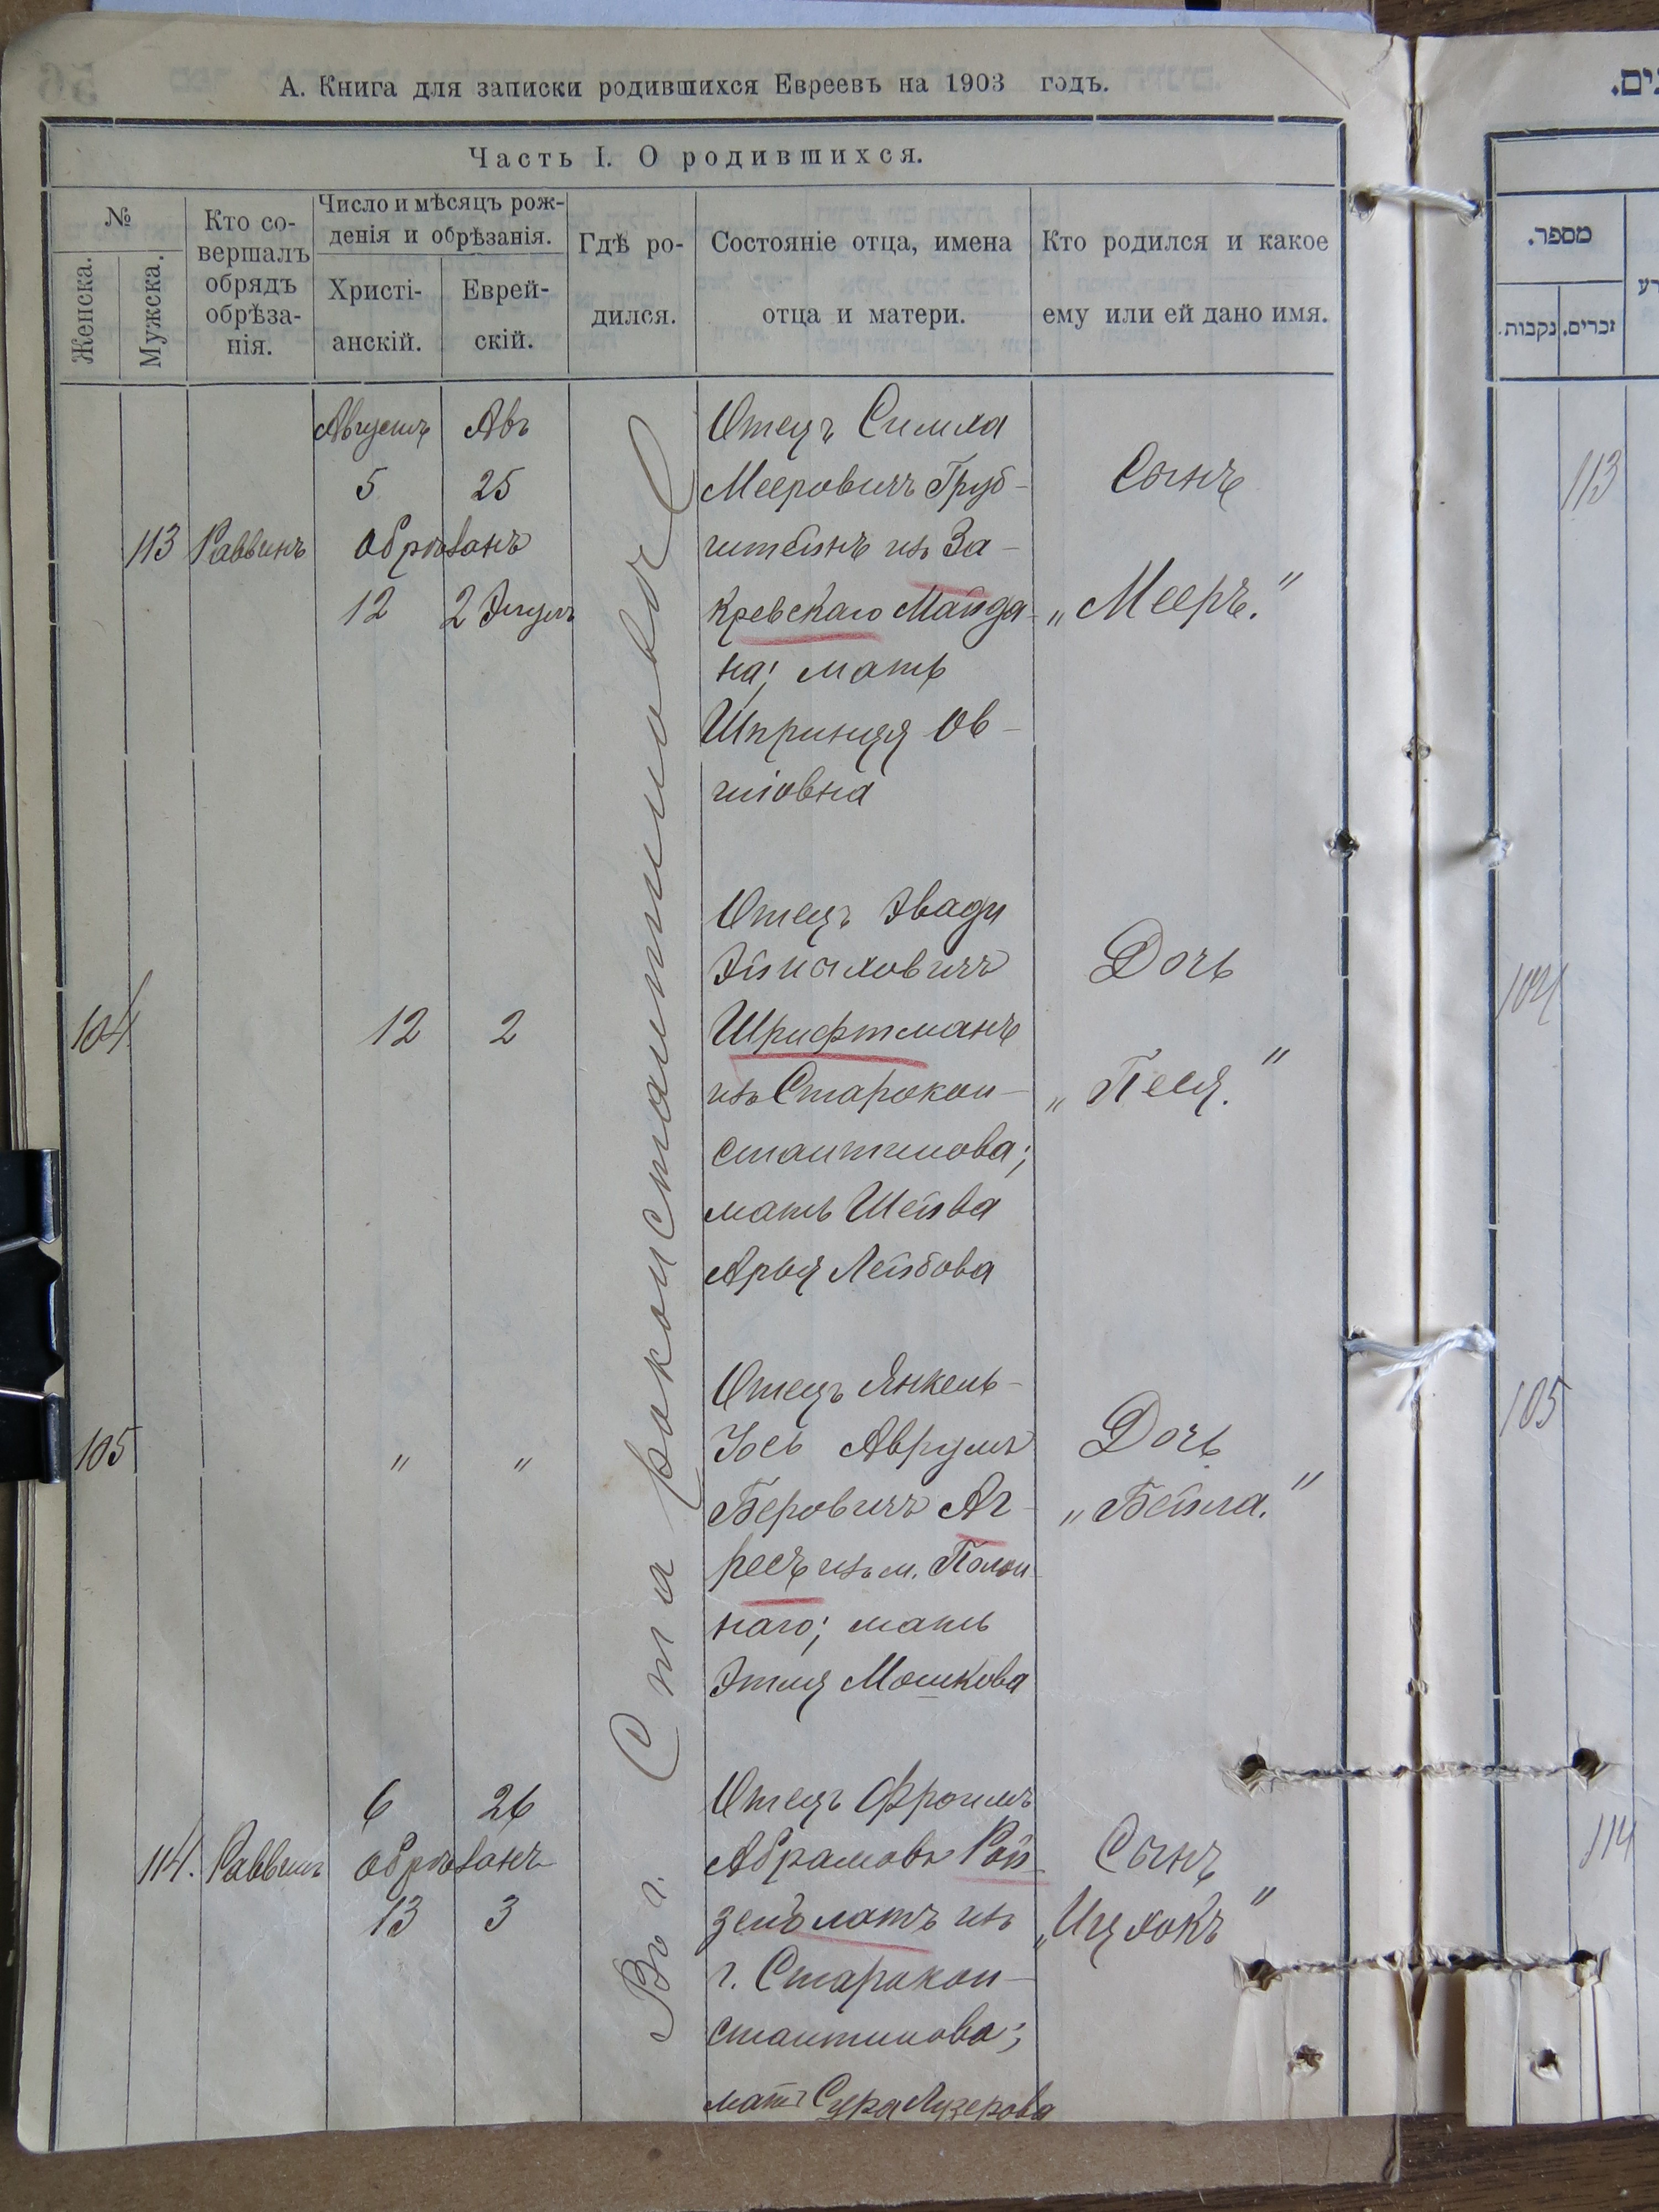 А. Книга для записки родившихся Евреевъ на 1903 годъ.
Часть I. О родившихся.
№
Женска.
Мужска.
Кто со-
вершалъ
обрядъ
обрѣза-
нія.
Число и мѣсяцъ рож-
денія и обрѣзанія.
Христі-
анскій.
Еврей-
скій.
Гдѣ ро-
дился.
Состояніе отца, имена
отца и матери.
Кто родился и какое
ему или ей дано имя.
מספר.
זכרים.
נקבות.
Въ г. Староконстантиновѣ
113
Раввинъ
Августъ Авъ
5 25
обрѣзанъ
12 2 Элулъ
Отецъ Симха
Мееровичъ Груб-
штейнъ изъ За-
кревскаго Майда-
на; мать
Шпринця Ов-
шіовна
Сынъ
„Мееръ."
113
104
12 2
Отецъ Эвади
Шрифтманъ
изъ Старокон-
стантинова;
мать Шейва
Арья Лейбова
Дочь
„Песя."
104
105
" "
Отецъ Янкель-
Іось Аврумъ
Беровичъ Аг-
ресъ изъ м. Полон-
наго; мать
Этля Мошкова
Дочь
„Бейла."
105
114. Раввинъ
6 26
обрѣзанъ
13 3
Отецъ Фроимъ
Абрамовъ Рой-
зенблатъ изъ
г. Старокон-
стантинова;
мать Сура Лузерова
Сынъ
„Ицхокъ"
114